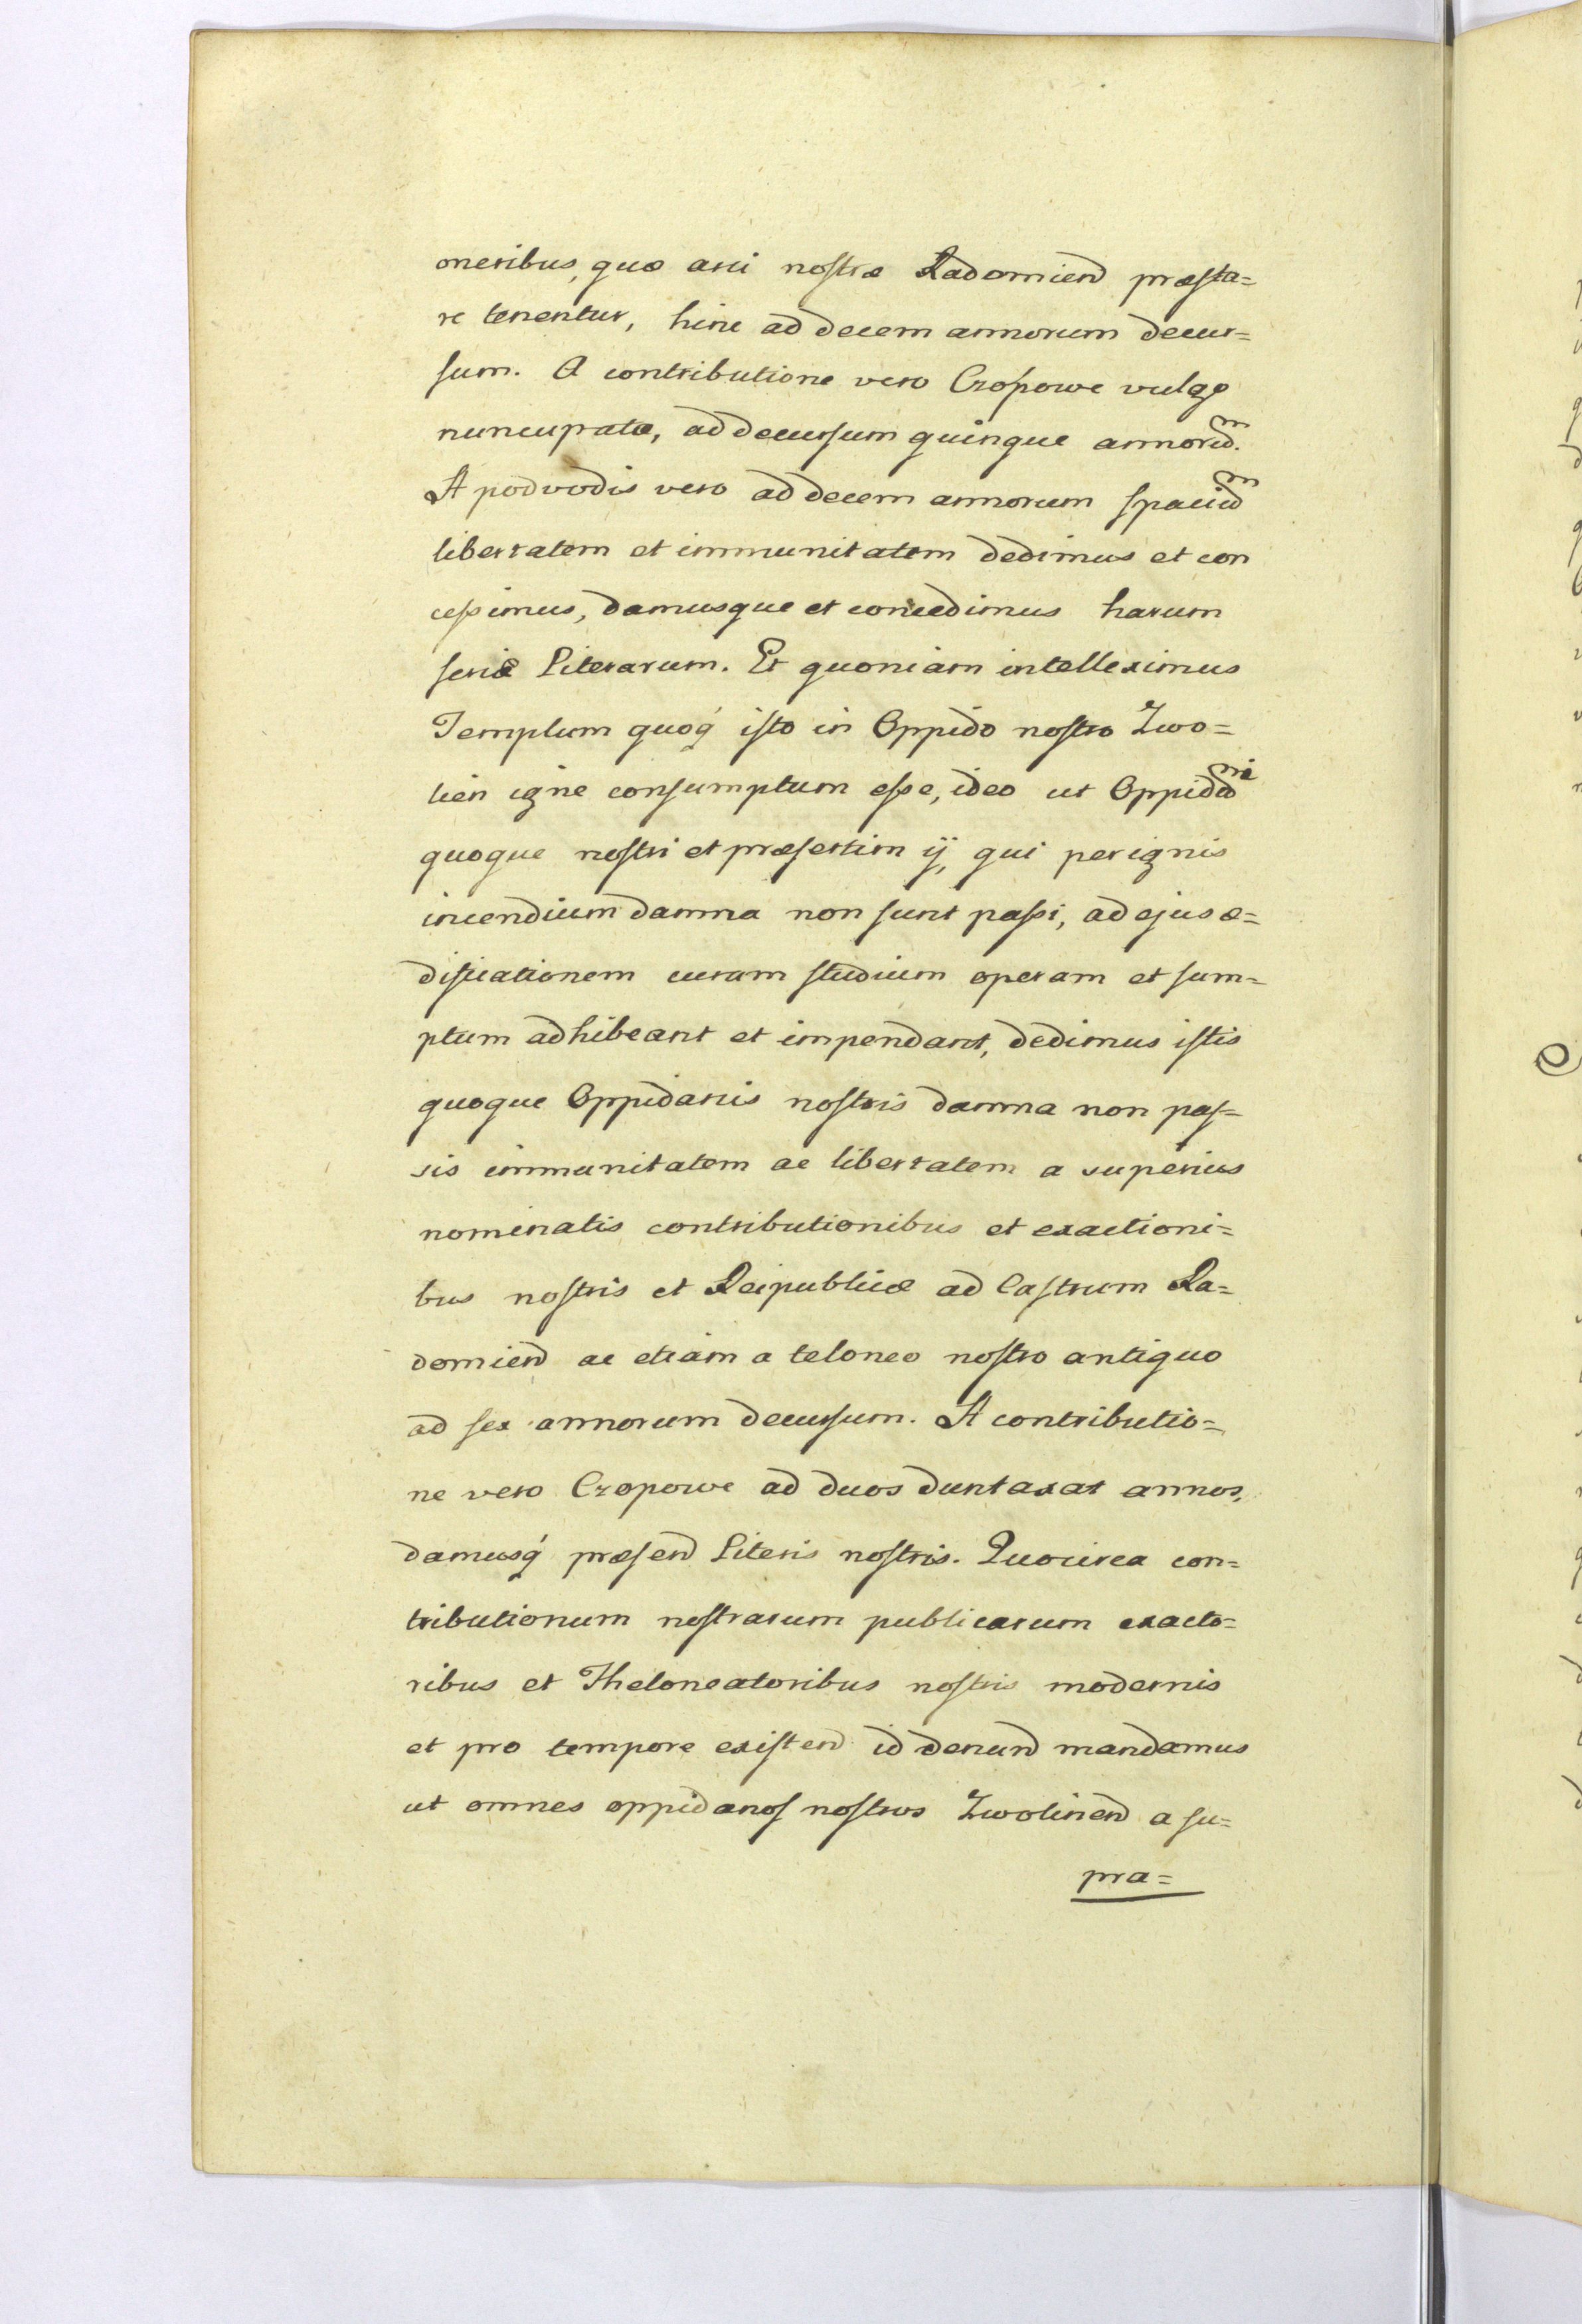 oneribus, quæ arci nostræ Radomien præsta=
re tenentur, hinc ad decem annorum decur=
sum. A contributione vero Czopowe vulgo
nuncupata, ad decursum quinque annorum.
A podvodis vero ad decem annorum spacium
libertatem et immunitatem dedimus et con
cessimus, damusque et concedimus harum
serie Literarum. Et quoniam intelleximus
Templum quoq isto in Oppido nostro Zwo=
lien igne consumptum esse, ideo ut Oppidani
quoque nostri et præsertim ij, qui per ignis
incendium damna non sunt passi, ad ejus æ=
dificationem curam studium operam et sum=
ptum adhibeant et impendant, dedimus istis
quoque Oppidanis nostris damna non pas=
sis immunitatem ac libertatem a superius
nominatis contributionibus et exactioni=
bus nostris et Reipublicæ ad Castrum Ra=
domien ac etiam a teloneo nostro antiquo
ad sex annorum decursum. A contributio=
ne vero Czopowe ad duos duntaxat annos,
damusq præsen Literis nostris. Quocirca con=
tributionum nostrarum publicarum exacto=
ribus et Theloneatoribus nostris modernis
et pro tempore existen id denun mandamus
ut omnes oppidanos nostros Zwolinen a su=
pra=